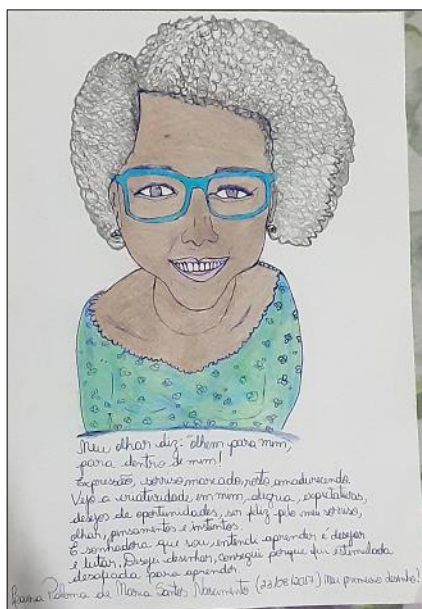 Meu olhar diz: "olhem para mim,
para dentro de mim!
Expressão, sorriso marcado, rosto amadurecendo.
Vejo a criatividade em mim, alegria, expectativas,
desejos de oportunidades, ser feliz pelo meu sorriso,
olhar, pensamentos e instintos.
E sonhadora que sou, entendi aprender é desejar
e lutar. Desejei desenhar, consegui porque fui estimulada
desafiada para aprender.
Paloma de Maria Santos Nascimento (23/08/2017) Meu primeiro desenho!